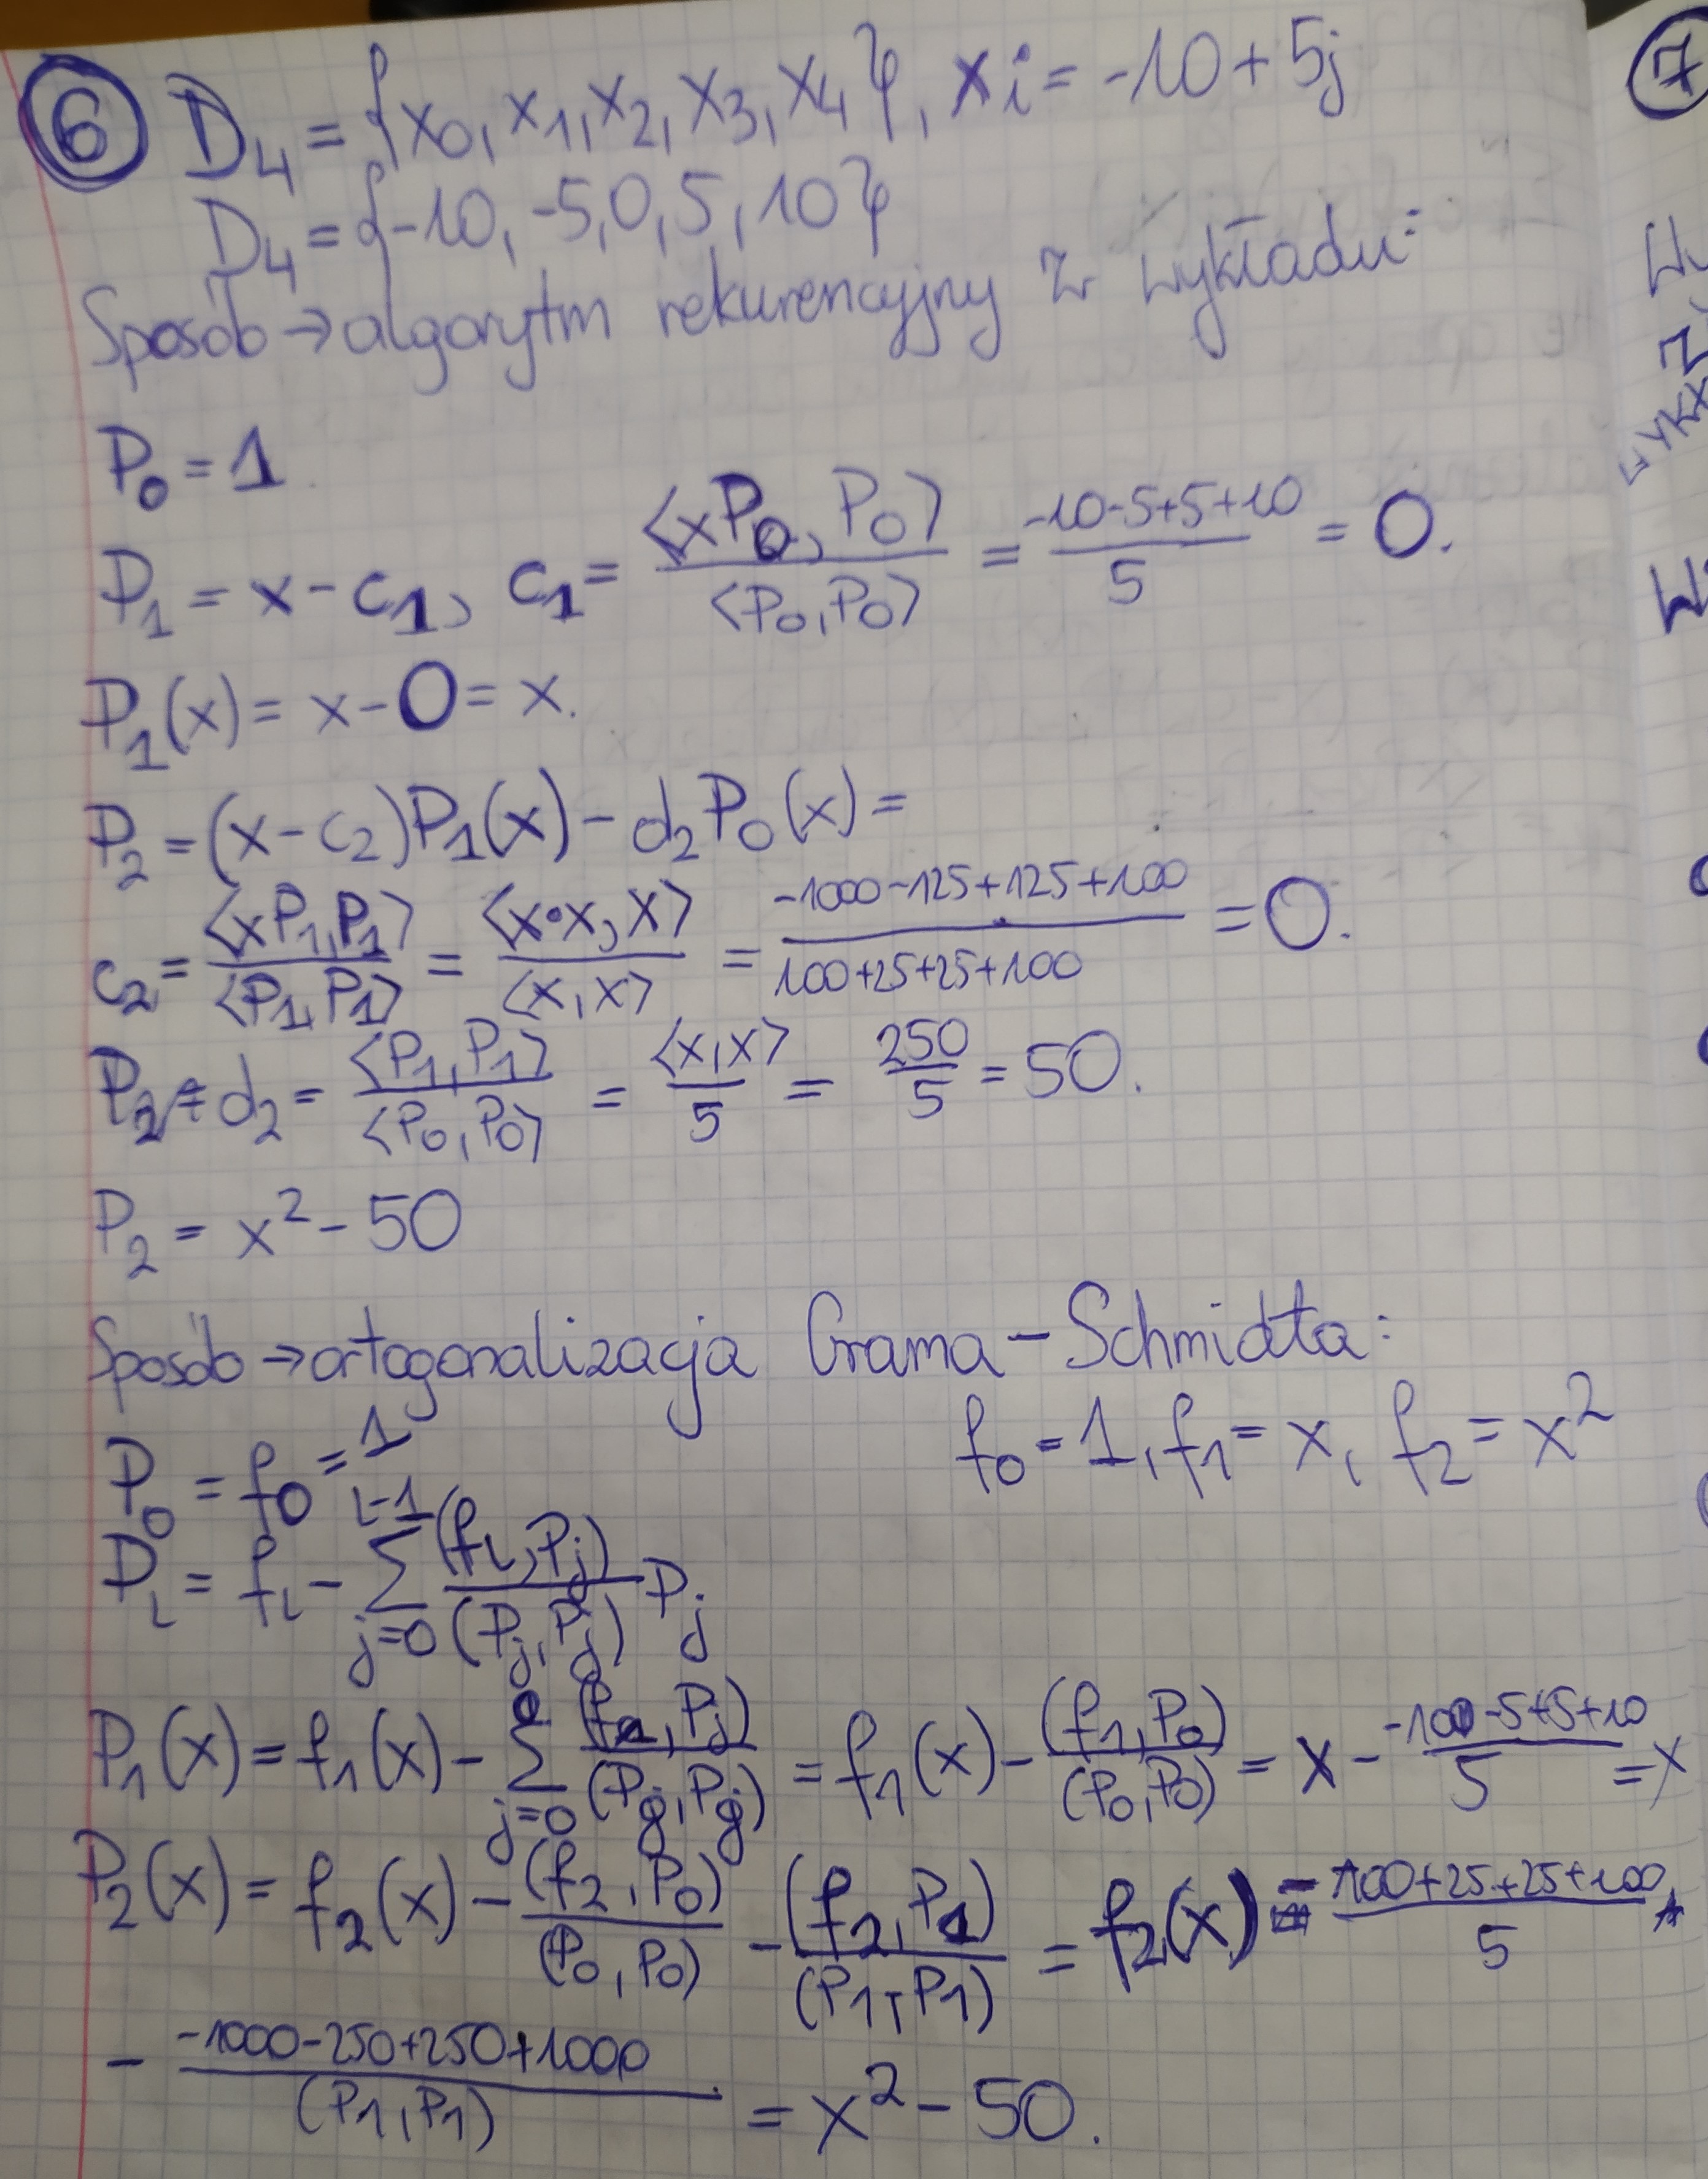 6 D₄ = {x₀, x₁, x₂, x₃, x₄}, xi = -10 + 5j
D₄ = {-10, -5, 0, 5, 10}
Sposób → algorytm rekurencyjny z wykładu:
P₀ = 1
P₁ = x - c₁, c₁ = <xP₀, P₀> / <P₀, P₀> = -10-5+5+10 / 5 = 0.
P₁(x) = x - 0 = x.
P₂ = (x - c₂)P₁(x) - d₂P₀(x) =
c₂ = <xP₁, P₁> / <P₁, P₁> = <x·x, x> / <x, x> = -1000-125+125+100 / 100+25+25+100 = 0.
d₂ = <P₁, P₁> / <P₀, P₀> = <x, x> / 5 = 250 / 5 = 50.
P₂ = x² - 50
Sposób → ortogonalizacja Grama-Schmidta:
P₀ = f₀ = 1
f₀ = 1, f₁ = x, f₂ = x²
Pᵢ = fᵢ - Σ_{j=0}^{i-1} (fᵢ, Pⱼ) / (Pⱼ, Pⱼ) Pⱼ
P₁(x) = f₁(x) - Σ_{j=0}^{0} (f₁, Pⱼ) / (Pⱼ, Pⱼ) = f₁(x) - (f₁, P₀) / (P₀, P₀) = x - -10-5+5+10 / 5 = x
P₂(x) = f₂(x) - (f₂, P₀) / (P₀, P₀) - (f₂, P₁) / (P₁, P₁) = f₂(x) - 100+25+25+100 / 5
- -1000-250+250+1000 / (P₁, P₁) = x² - 50.
7